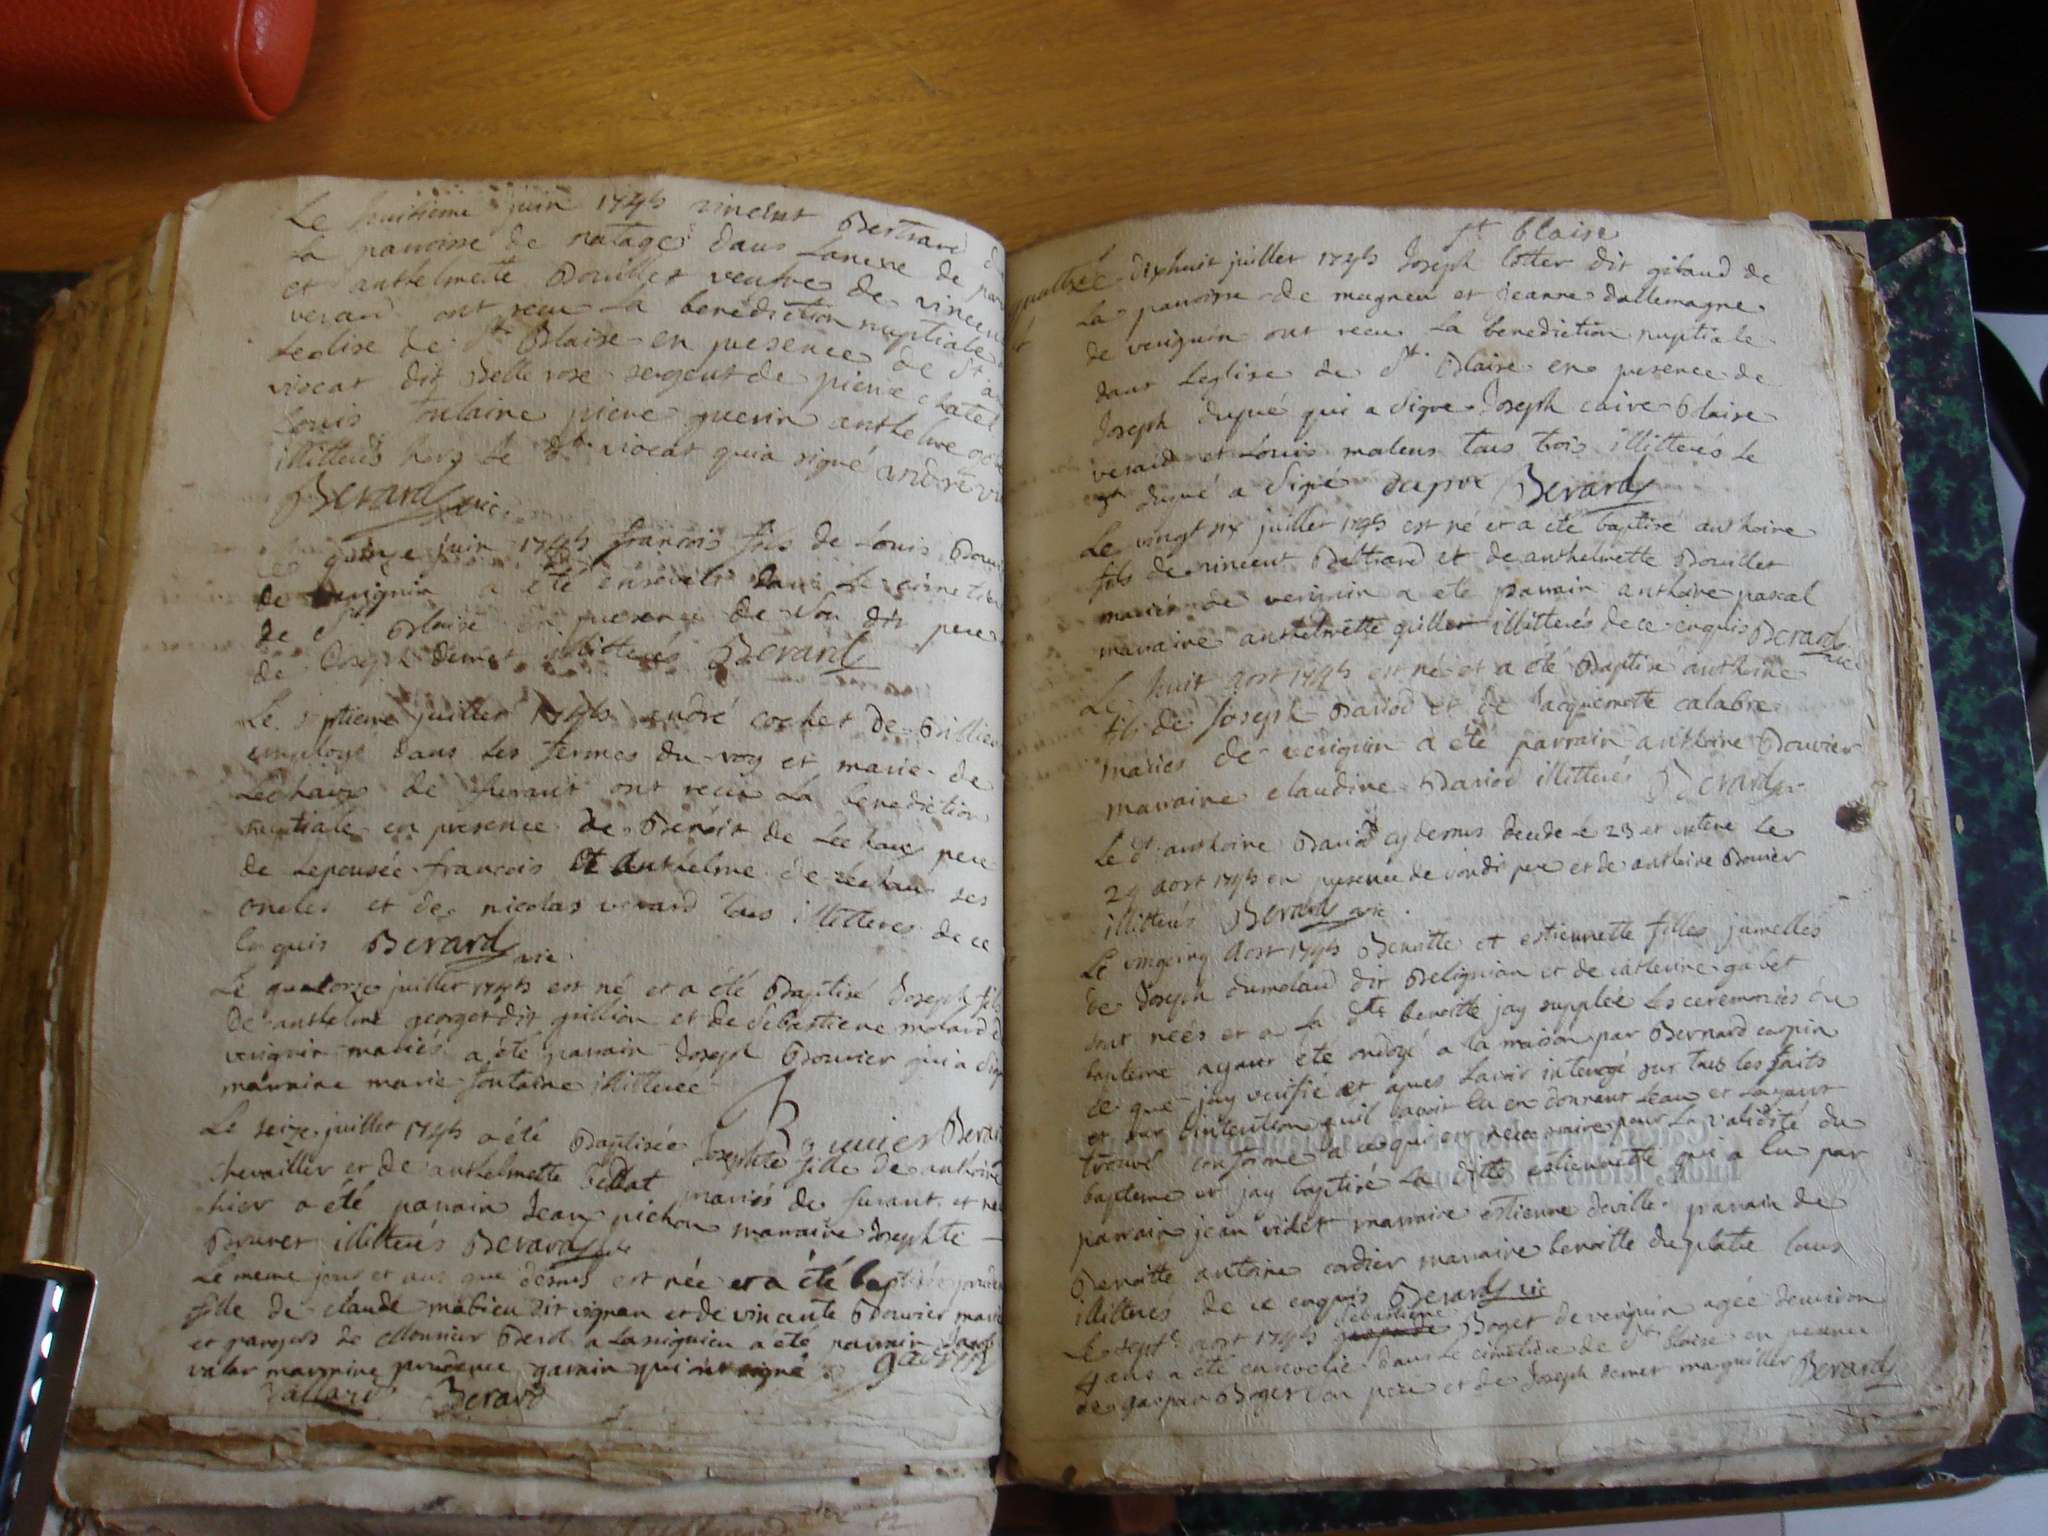 Le huitieme juin 1745 vincent Bertrand
La parroisse de natage dans
et anthelmette Douillet veufve de vincen
verard ont recu La benediction nuptiale
Leglise de St Blaise en presence de St
viocat dit Belle rose sergent de pierre chatel
Louis fontaine piere guerin anthelme
illitterés hors Le dt viocat qui a signé andré
Berard vic
Le quinze juin 1745 francois fils de Louis
de verignin a été enseveli dans Le cimetier
de St Blaise en presence de son dit pere
de Joseph demet illitterés Berard
Le septieme juillet 1745 andré cochet de
employé dans Les fermes du roy et marie de
Léchaux de surant ont recu La benediction
nuptiale en presence de Benoit de Lechaux pere
de Lepousée francois et Anthelme de Léchaux ses
oncles et de nicolas verard tous illitteres de ce
enquis Berard vic
Le quatorze juillet 1745 est né et a été Baptisé Joseph fils
de anthelme georget dit guillion et de sebastiene molard d
verignin mariés a été parrain Joseph Bouvier qui a
marraine marie fontaine illitterée
Bouvier Berar
Le seize juillet 1745 a été Baptisée Josephte fille de anthoine
chevaillier et de anthelmette Billat mariés de surant et
hier a été parrain Jean pichon marraine Josephte
Brunet illitterés Berard vic
Le meme jour et an que dessus est née et a été baptisée pruden
fille de claude mabieu dit vignan et de vincente Bouvier marié
et grangers de Monsieur a Lassignieu a été parrain Jacob
marraine prudence garnin qui ont signé
Berard
St blaise
Le dixhuit juillet 1745 Joseph dit gibaud de
La parroisse de magneu et jeanne dallemagne
de verignin ont recu La benediction nuptiale
dans Leglise de St Blaise en presence de
Joseph dupré qui a signé Joseph caire blaise
veraud et Louis molens tous trois illitterés Le
dt dupré a signé dupre Berard
Le vingt six juillet 1745 est né et a été baptisé anthoine
fils de vincent Bertrand et de anthelmette Douillet
mariés de verignin a été parrain anthoine pascal
marraine anthelmette guillet illitterés de ce enquis Berard vic
Le huit aost 1745 est né et a été Baptisé anthoine
fils de Joseph Dariod et de Jacquemette calabre
mariés de verignin a été parrain anthoine Bouvier
marraine claudine Dariod illitterés Berard
Le dt anthoine Dariod cy dessus decede Le 23 et enterré Le
24 aost 1745 en presence de son dit pere et de anthoine Bouvier
illitterés Berard vic
Le vingcinq Aost 1745 Benoitte et estiennette filles jumelles
de Joseph dumolard dit Belignian et de catherine gabet
sont néés et a la dtte benoitte jay supplée Les ceremonies du
bapteme ayant été ondoyé a la maison par Bernard carpin
ce que jay verifié et apres Lavoir interogé sur tous les faits
et sur Lintention quil avoit eu en donnant Leau et Layant
trouvé conforme a ce qui est necessaire pour La validité du
bapteme et jay baptisé La ditte estiennette qui a Eu par
parrain jean videt marraine estienne deville parrain de
Benoitte antoine cordier marraine benoitte duplatre tous
illitterés de ce enquis Berard vic
Le septe aost 1745 sebastiene Boget de verignin agée denviron
4 ans a été ensevelie dans Le cimetiere de St blaise en presence
de gaspar Boget son pere et de Joseph demet marguillier Berard